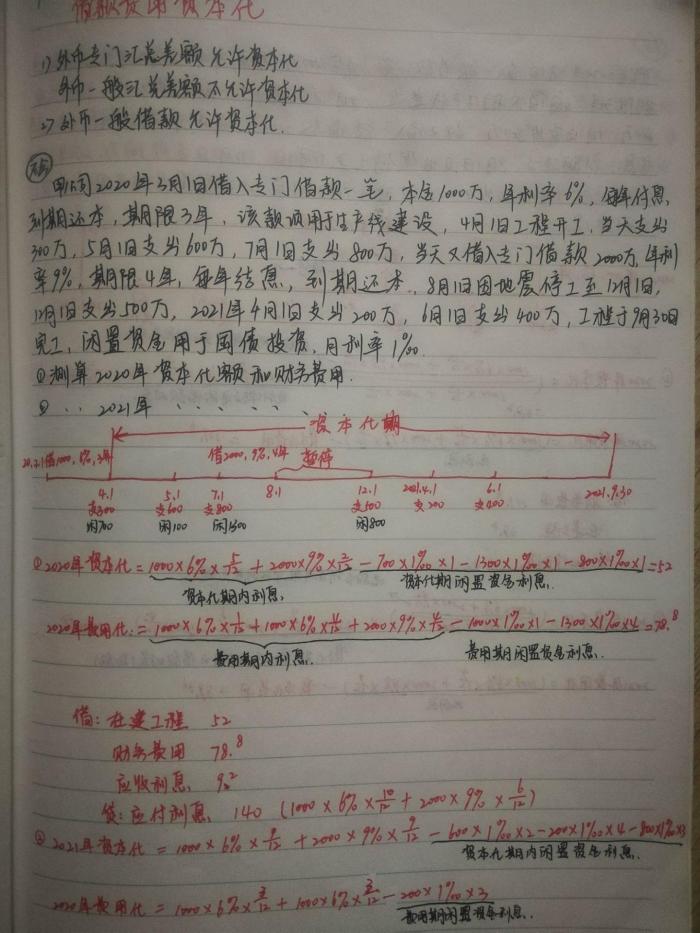 借款费用资本化
1) 外币专门汇兑差额允许资本化
外币一般汇兑差额不允许资本化
2) 外币一般借款允许资本化.
甲公司2020年3月1日借入专门借款一笔, 本金1000万, 年利率6%, 每年付息,
到期还本, 期限3年, 该款项用于生产线建设, 4月1日工程开工, 当天支出
300万, 5月1日支出600万, 7月1日支出800万, 当天又借入专门借款2000万, 年利
率9%, 期限4年, 每年结息, 到期还本, 8月1日因地震停工至12月1日,
12月1日支出500万, 2021年4月1日支出200万, 6月1日支出400万, 工程于9月30日
完工, 闲置资金用于国债投资, 月利率1‰.
①测算2020年资本化额和财务费用.
② 〃 〃 2021年 〃 〃 〃 〃 〃 〃
资本化期
20.3.1借1000, 6%, 3年 借2000, 9%, 4年 暂停
4.1 5.1 7.1 8.1 12.1 2021.4.1 6.1 2021.9.30
支300 支600 支800 支500 支200 支400
闲700 闲100 闲1300 闲800
①2020年资本化=1000×6%×5/12+2000×9%×2/12-700×1‰×1-1300×1‰×1-800×1‰×1=52
资本化期内利息. 资本化期闲置资金利息.
2020年费用化:=1000×6%×1/12+1000×6%×4/12+2000×9%×4/12-1000×1‰×1-1300×1‰×4=78.8
费用期内利息. 费用期闲置资金利息.
借: 在建工程 52
财务费用 78.8
应收利息 9.2
贷: 应付利息 140 (1000×6%×10/12+2000×9%×6/12)
②2021年资本化=1000×6%×9/12+2000×9%×9/12-600×1‰×2-200×1‰×4-800×1‰×3
资本化期内闲置资金利息.
2020年费用化=1000×6%×3/12+1000×6%×3/12-200×1‰×3
费用期闲置资金利息.